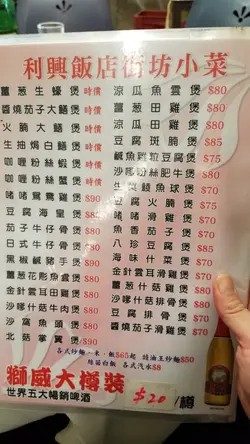 利興飯店街坊小菜
薑葱生蠔煲 時價
醬燒茄子大鱔煲 時價
火腩大鱔煲 時價
生抽焗白鱔煲 時價
咖喱粉絲蝦煲 時價
咖喱粉絲蟹煲 時價
啫啫鴛鴦雞煲 $90
豆腐海皇煲 $80
茄子牛仔骨煲 $90
日式牛仔骨煲 $90
黑椒鹹豬手煲 $90
薑葱花彫魚雲煲 $80
金針雲耳田雞煲 $80
沙嗲什菇牛肉煲 $80
沙窩魚頭煲 $80
北菇掌翼煲 $90
涼瓜魚雲煲 $80
薑葱田雞煲 $80
涼瓜田雞煲 $80
豆腐斑腩煲 $80
鹹魚雞粒豆腐煲 $70
沙嗲粉絲肥牛煲 $80
生菜鯪魚球煲 $70
豆腐火腩煲 $75
啫啫滑雞煲 $70
魚味茄子煲 $70
八珍豆腐煲 $70
金針雲耳滑雞煲 $70
沙嗲什菇排骨煲
豆腐排骨煲
醬燒茄子滑雞煲 $70
各式炒麵、米、粄$65起 豉油王炒麵$50
絲苗白飯 各式汽水$8
獅威大樽裝
世界五大暢銷啤酒
$20 /樽